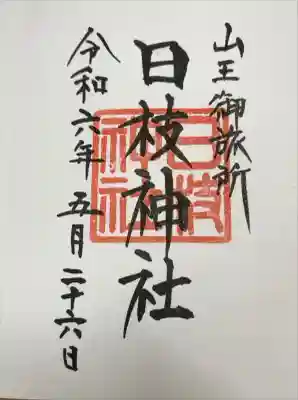 山王御旅所
日枝神社
令和六年 五月二十六日
日枝神社